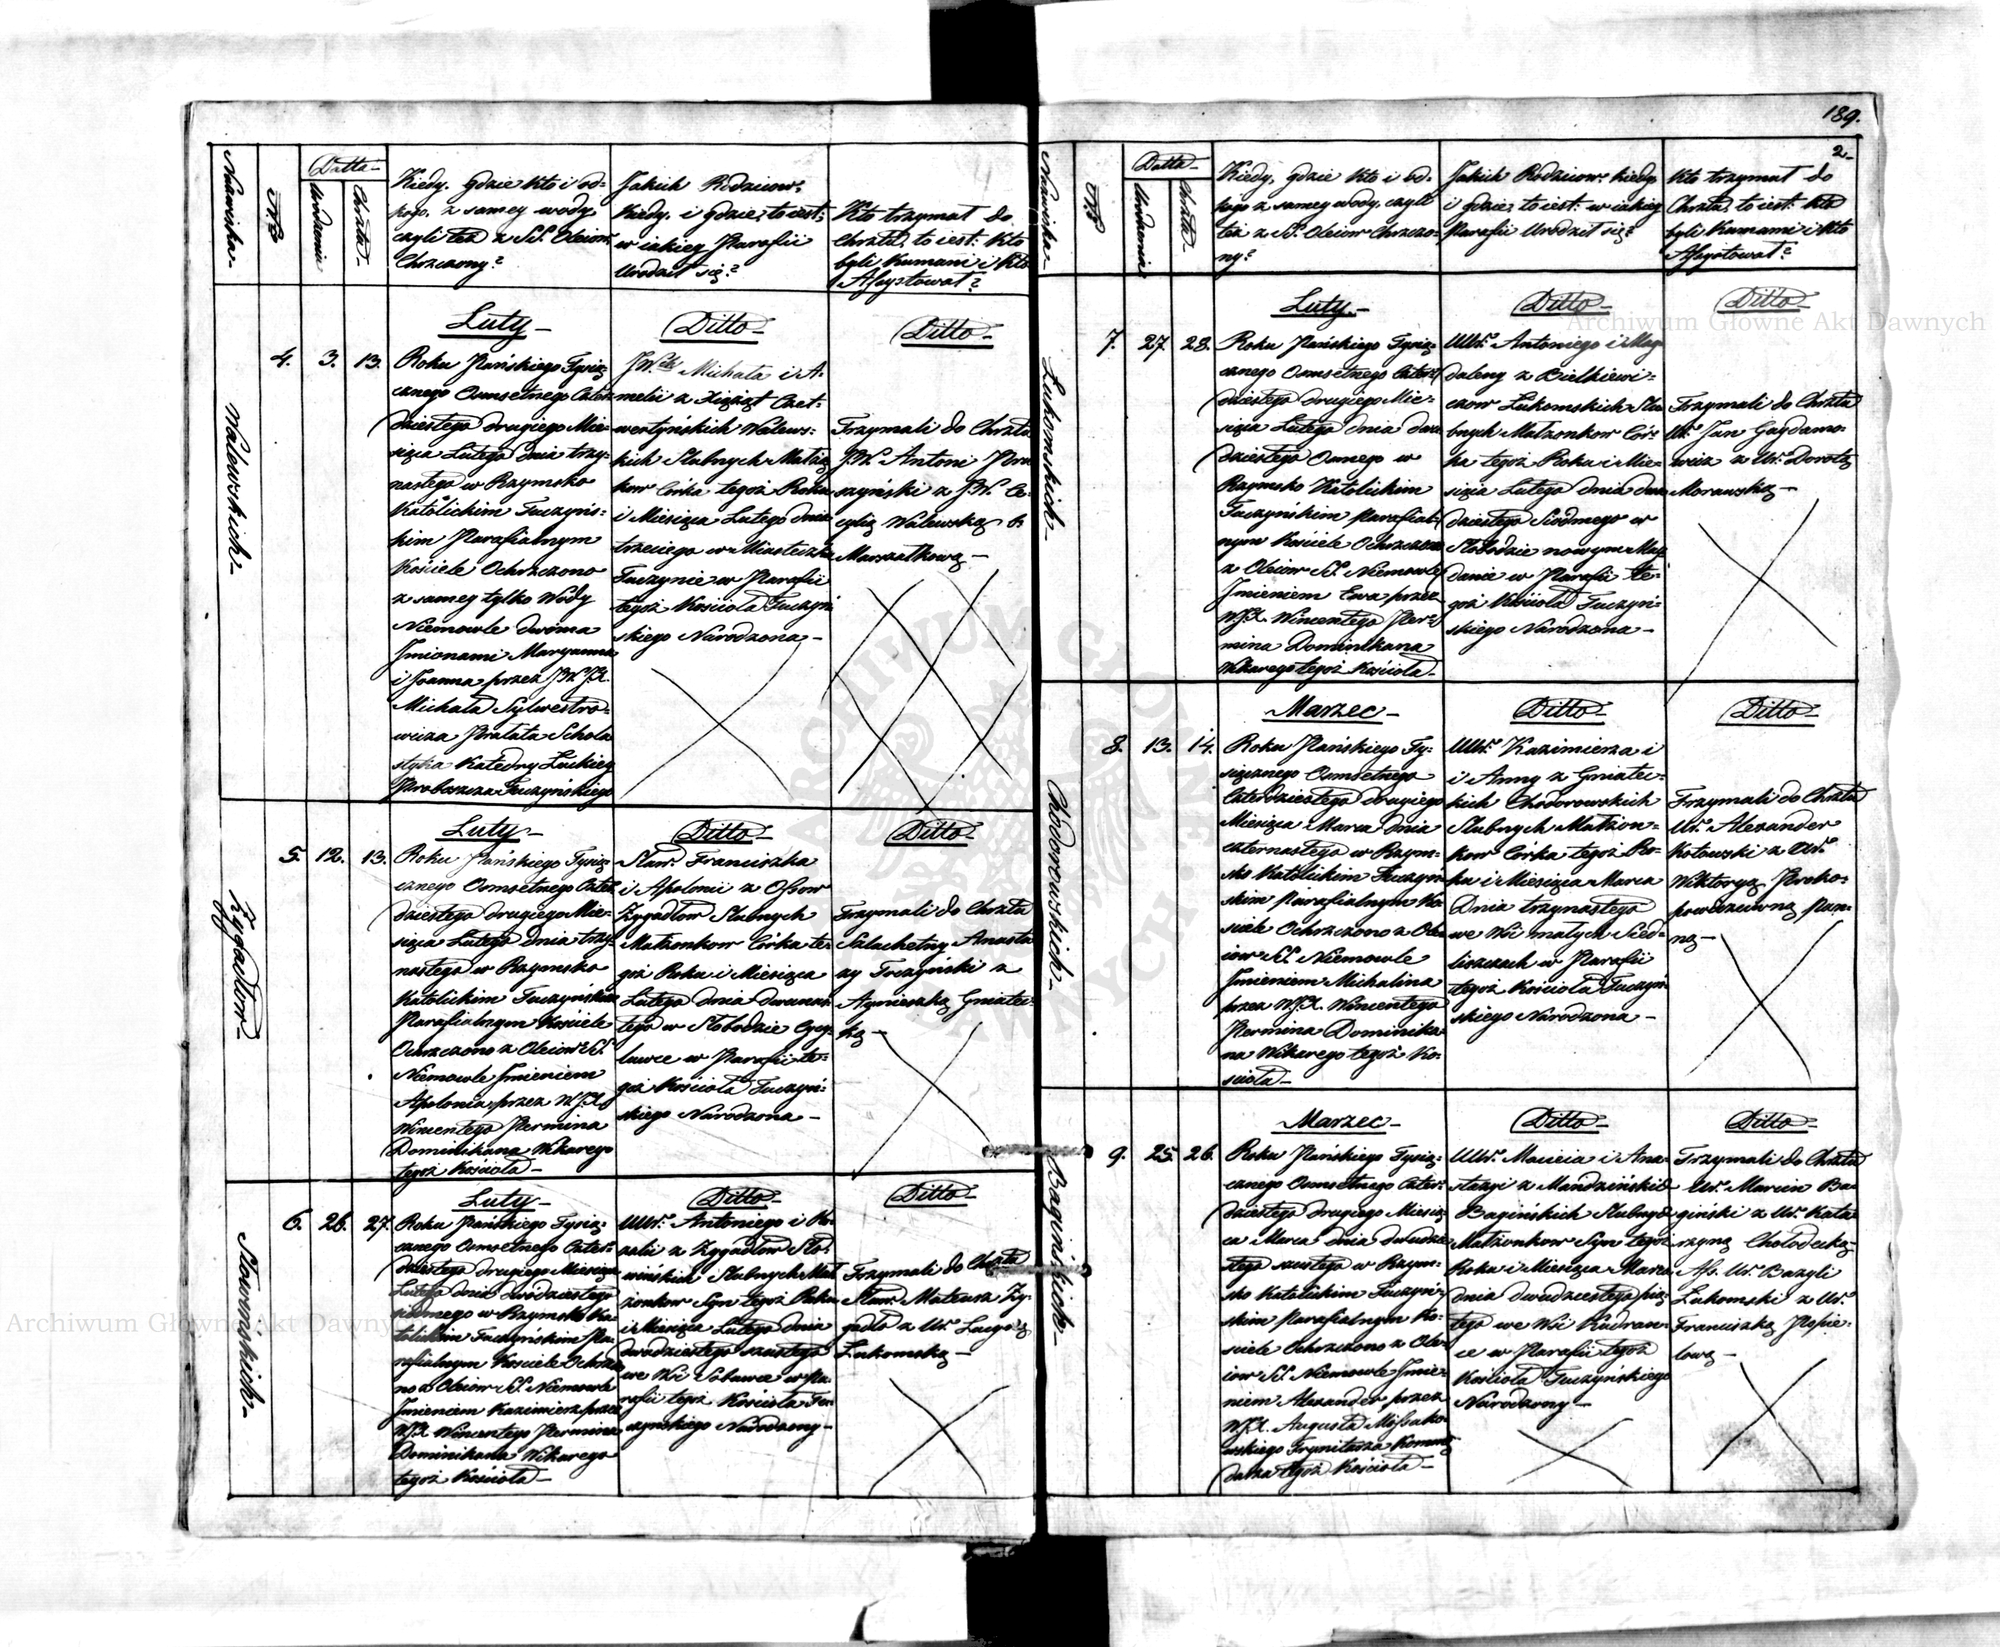 Nazwiska-
No
Datta-
Urodzenia
Chrztu-
Kiedy. Gdzie kto i od-
kogo, z samey wody
czyli też z SS. Oleiow
Chrzczony?
Jakich Rodzicow.
kiedy, i gdzie, to iest:
w iakiey Parafii
Urodził się?
Kto trzymał do
Chrztu, to iest: kto
byli Kumami i kto
Assystował?
Walewskich-
Luty-
4. 3. 13.
Roku Pańskiego Tysią
cznego Osmsetnego Czter
dziestego drugiego Mie-
siąca Lutego dnia trzy-
nastego w Rzymsko
Katolickim Tuczyńs-
kim Parafialnym
Kościele Ochrzczono
z samey tylko Wody
Niemowle dwóma
Imionami Maryanna
i Joanna przez JW. JX.
Michała Sylwestro-
wicza Prałata Schola
styka Katedry Łuckiey
Proboszcza Tuczyńskiego
Ditto-
Michała i A-
melii z Xiążąt Czet-
wertyńskich Walews-
kich Slubnych Małżą
kow Córka tegoż Roku
i Miesiąca Lutego dnia
trzeciego w Miasteczku
Tuczynie w Parafii
tegoż Kościoła Tuczyń
skiego Narodzona-
Ditto-
Trzymali do Chrztu
JW. Antoni Pru
szyński z JW. Ce-
cylią Walewską b.
Marszałkową-
Zygadłow-
Luty-
5. 12. 13.
Roku Pańskiego Tysią
cznego Osmsetnego Czter
dziestego drugiego Mie-
siąca Lutego dnia trzy-
nastego w Rzymsko
Katolickim Tuczyńskim
Parafialnym Kościele
Ochrzczono z Oleiow SS.
Niemowle Imieniem
Apolonia, przez WJX.
Wincentego Permina
Dominikana Wikarego
tegoż Kościoła-
Ditto-
Sław. Franciszka
i Apolonii z Ossow
Zygadłow Slubnych
Małżonkow Córka te-
goż Roku i Miesiąca
Lutego dnia dwunas-
tego w Słobodzie
w Parafii te-
goż Kościoła Tuczyń-
skiego Narodzona-
Ditto-
Trzymali do Chrztu
Szlachetny Anasta
zy Trczyński z
Agnieszką Gniatec-
ką-
Słowińskich-
Luty-
6. 26. 27.
Roku Pańskiego Tysią-
cznego Osmsetnego Czter-
dziestego drugiego Miesiąca
Lutego dnia dwódziestego
siódmego w Rzymsko Ka
tolickim Tuczyńskim Pa-
rafialnym Kościele Ochrzczo
no z Oleiow SS. Niemowle
Imieniem Kazimierz przez
WJX Wincentego Permina
Dominikana Wikarego
tegoż Kościoła-
Ditto-
UUr. Antoniego i Ro-
zalii z Zygadłow Sło-
wińskich Slubnych Mał
żonkow Syn tegoż Roku
i Miesiąca Lutego dnia
dwódziestego szóstego
we Wsi w Pa-
rafii tegoż Kościoła Tu-
czyńskiego Narodzony-
Ditto-
Trzymali do Chrztu
Sław. Mateusz Zy-
gadło z Ur.
Łukomską-
189.
2-
Nazwiska-
No
Datta-
Urodzenia
Chrztu-
Kiedy, gdzie kto i od-
kogo z samey wody, czyli
też z SS. Oleiow Chrzczo-
ny?
Jakich Rodzicow: kiedy
i gdzie, to iest: w iakiey
Parafii Urodził się?
Kto trzymał do
Chrztu, to iest: kto
byli Kumami i kto
Assystował?
Łukomskich-
Luty.-
7. 27 28.
Roku Pańskiego Tysią-
cznego Osmsetnego Czter
dziestego drugiego Mie-
siąca Lutego dnia dwu
dziestego Osmego w
Rzymsko Katolickim
Tuczyńskim Parafial-
nym Kościele Ochrzczono
z Oleiow SS. Niemowle
Imieniem Ewa przez
WJX. Wincentego Per-
mina Dominikana
Wikarego tegoż Kościoła-
Ditto-
UUr. Antoniego i Mag
daleny z Bielkiewi-
czow Łukomskich Slu
bnych Małżonkow Cór-
ka tegoż Roku i Mie-
siąca Lutego dnia dwu
dziestego Siódmego w
Słobodzie nowym Maj
danie w Parafii te-
goż Kościoła Tuczyń-
skiego Narodzona-
Ditto-
Trzymali do Chrztu
Ur. Jan Gaydamo-
wicz z Ur. Dorotą
Morawską-
Chodorowskich-
Marzec-
8. 13. 14.
Roku Pańskiego Ty-
siącznego Osmsetnego
Czterdziestego drugiego
Miesiąca Marca dnia
czternastego w Rzym-
sko Katolickim Tuczyń
skim Parafialnym Ko
ściele Ochrzczono z Ole
iow SS. Niemowle
Imieniem Michalina
przez WJX. Wincentego
Permina Dominika-
na Wikarego tegoż Ko-
ścioła-
Ditto-
UUr. Kazimierza i
i Anny z Gniatec-
kich Chodorowskich
Slubnych Małżon-
kow Córka tegoż Ro-
ku i Miesiąca Marca
Dnia trzynastego
we Wsi małych Sied-
liszczach w Parafii
tegoż Kościoła Tuczyń
skiego Narodzona-
Ditto-
Trzymali do Chrztu
Ur. Alexander
Kotowski z Ur.
Wiktoryą Proko-
powiczowną Pan-
ną-
Bagińskich-
Marzec-
9. 25. 26.
Roku Pańskiego Tysią-
cznego Osmsetnego Czter-
dziestego drugiego Miesią
ca Marca dnia dwudzies
tego szóstego w Rzym-
sko Katolickim Tuczyń-
skim Parafialnym Ko-
ściele Ochrzczono z Ole-
iow SS. Niemowle Imie-
niem Alexander przez
WJX. Augusta Missako-
wskiego Trynitarza Kommen
darza tegoż Kościoła-
Ditto-
UUr. Macieia i Ana-
stazyi z Mandzińskich
Bagińskich Slubnych
Małżonkow Syn tegoż
Roku i Miesiąca Marca
dnia dwudziestego pią
tego we Wsi Kudran-
ce w Parafii tegoż
Kościoła Tuczyńskiego
Narodzony-
Ditto-
Trzymali do Chrztu
Ur. Marcin Ba-
giński z Ur. Kata-
rzyną Chołodecką-
As. Ur. Bazyli
Łukomski z Ur.
Franciszką Popie-
lową-
Archiwum Główne Akt Dawnych
Archiwum Główne Akt Dawnych